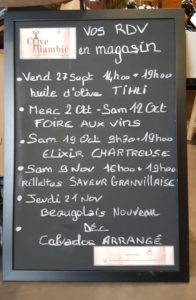 Cave
l'Alambic
Vos RDV
en magasin
• Vend 27 Sept 14h00 • 19h00
huile d'olive TIHLI
• Merc 2 Oct → Sam 12 Oct
FOIRE AUX VINS
• Sam 19 Oct 9h30 • 19h00
ELIXIR CHARTREUSE
• Sam 9 Nov 16h00 • 19h00
Rillettes SAVEUR GRANVILLAISE
• Jeudi 21 Nov
Beaugolais Nouveau
• Déc
Calvados ARRANGÉ